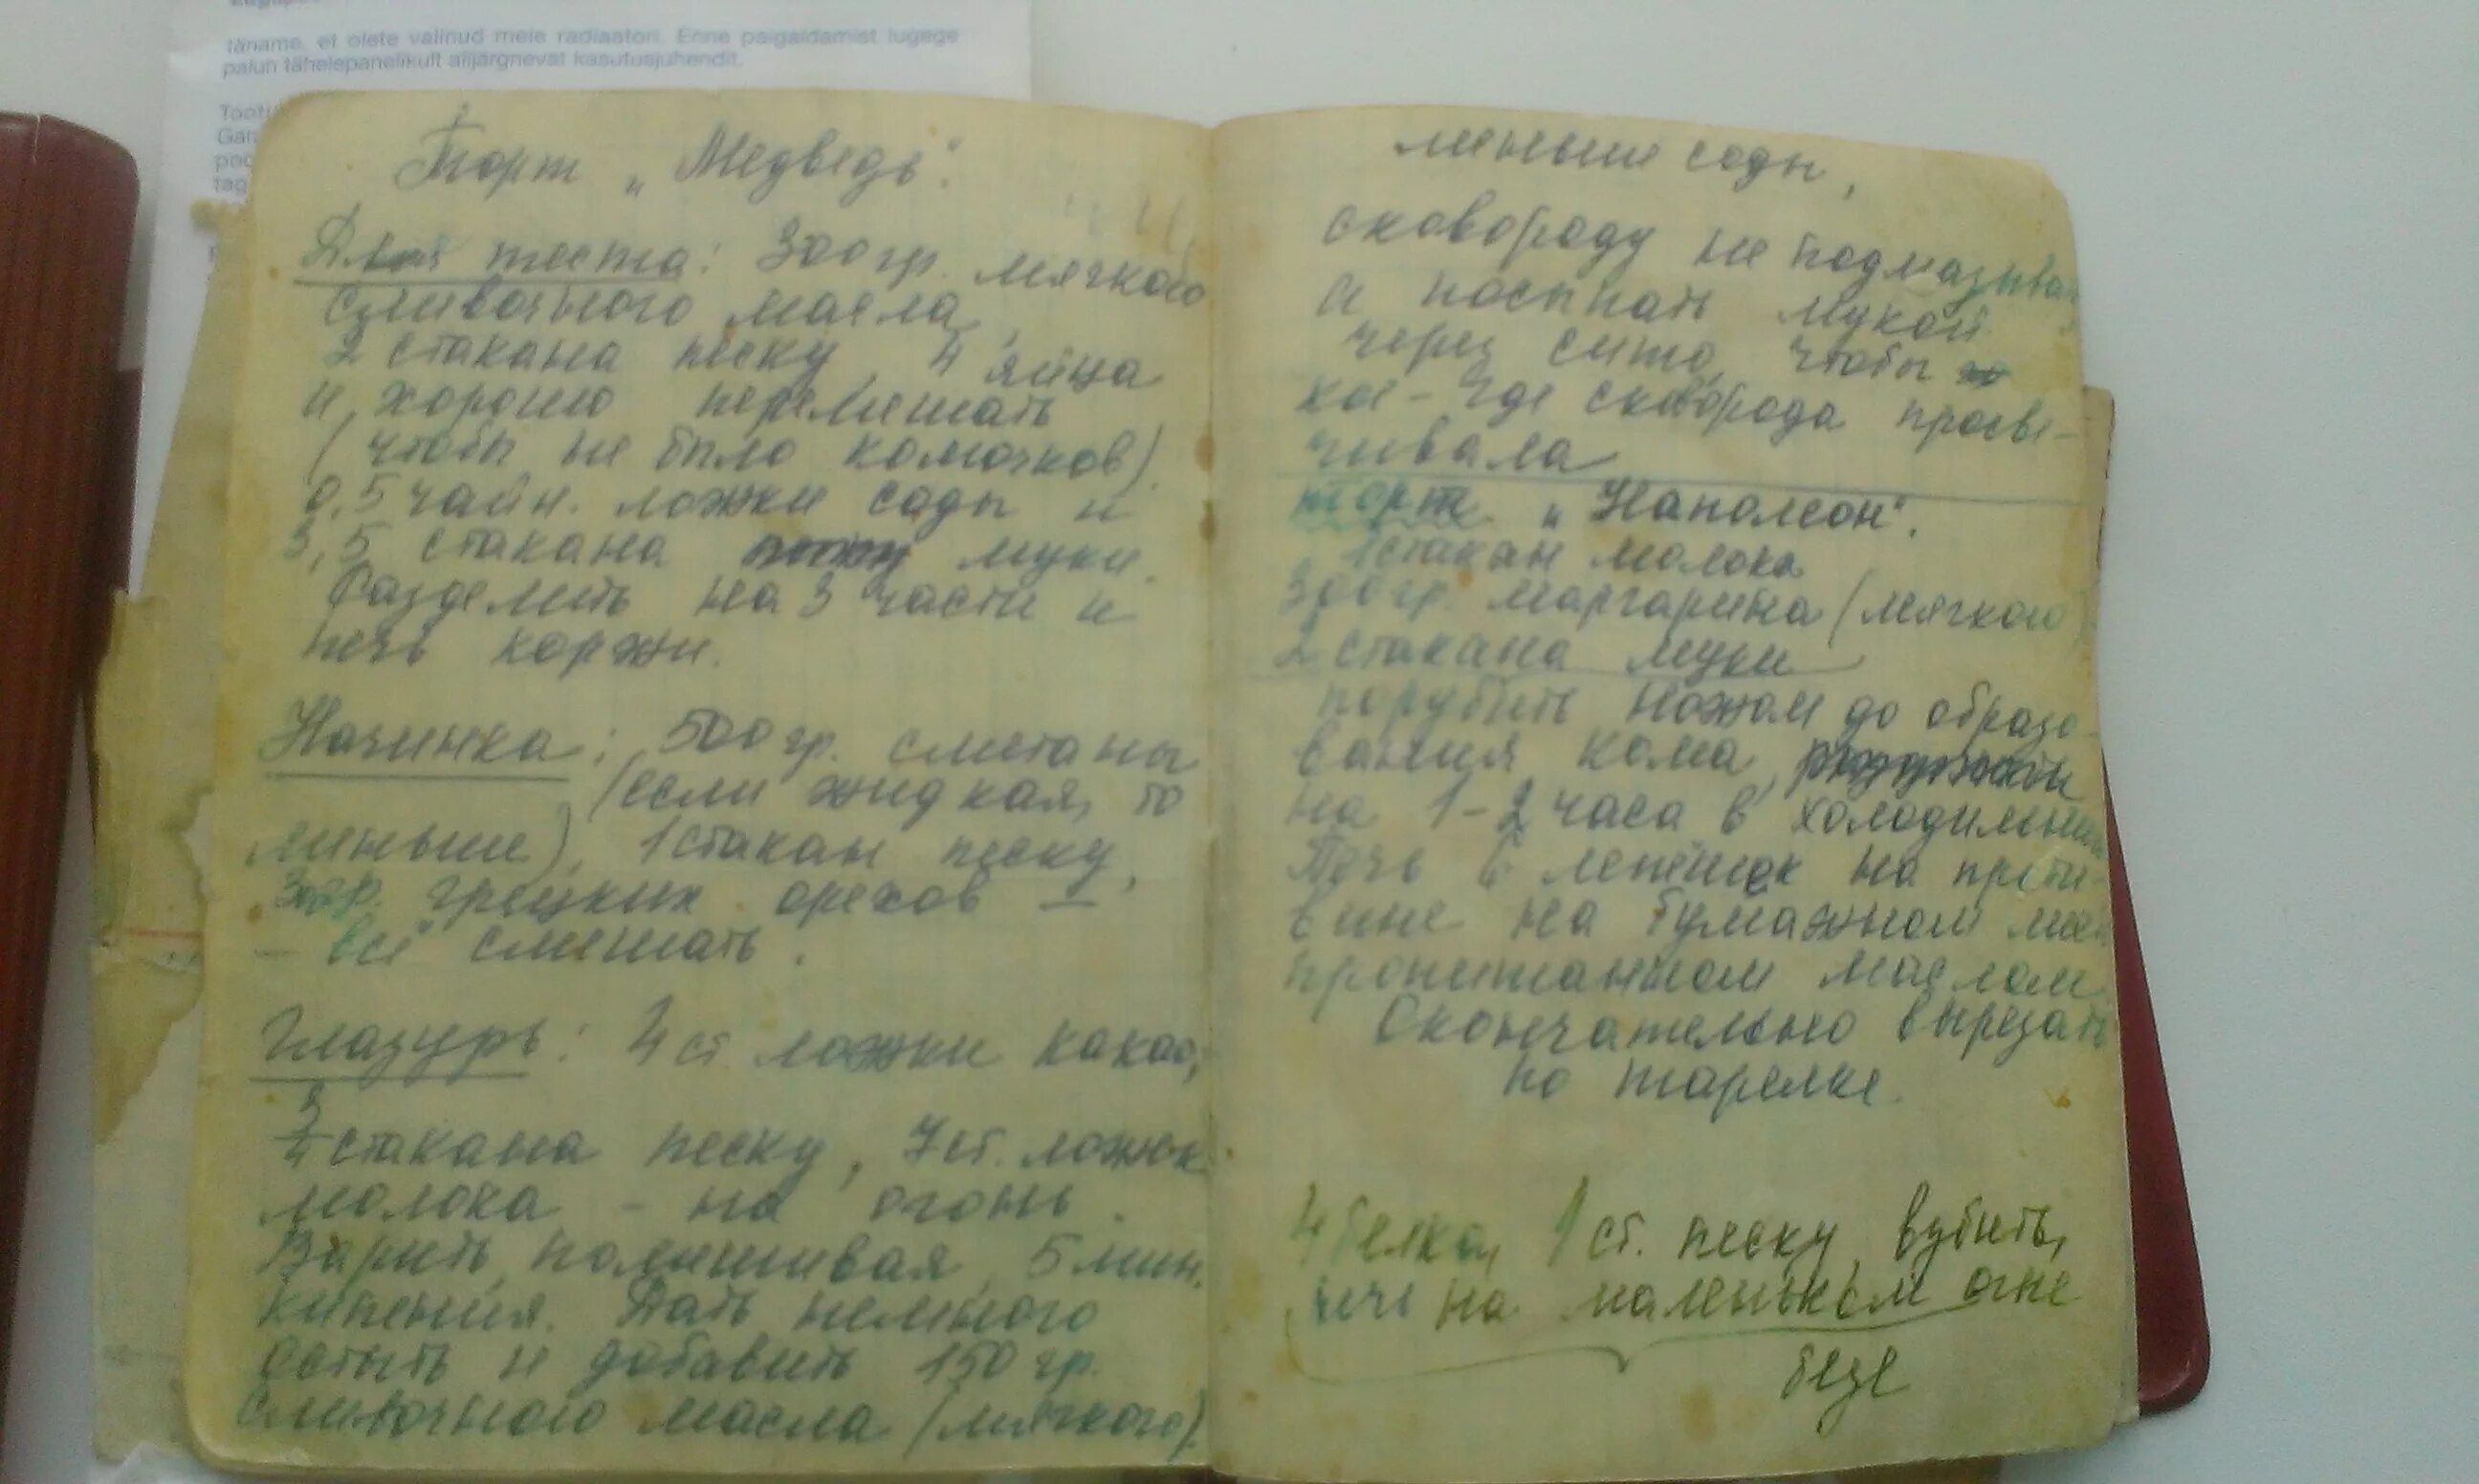 täname, et olete valinud meie radiaatori. Enne paigaldamist lugege
palun tähelepanelikult alljärgnevat kasutusjuhendit.
Торт „Медведь".
Для теста: 300 гр. мягкого
сливочного масла,
2 стакана песку, 4 яйца
и хорошо перемешать
(чтобы не было комочков).
0,5 чайн. ложки соды и
3,5 стакана муки.
Разделить на 3 части и
печь коржи.
Начинка: 500 гр. сметаны
(если жидкая, то
меньше), 1 стакан песку,
грецких орехов
- всё смешать.
Глазурь: 4 ст. ложки какао,
3/4 стакана песку, 7 ст. ложек
молока - на огонь.
Варить, помешивая, 5 мин.
кипения. Дать немного
остыть и добавить 150 гр.
сливочного масла (мягкого).
меньше соды,
сковороду не подмазыва
а посыпать мукой
через сито, чтобы
кое-где сковорода просве-
чивала
торт „Наполеон".
1 стакан молока
300 гр. маргарина (мягкого)
2 стакана муки
порубить ножом до образо-
вания кома,
на 1-2 часа в холодильник
Печь 6 лепёшек на проти-
вине на бумажном
пропитанном маслом.
Окончательно вырезать
по тарелке.
4 белка, 1 ст. песку, взбить,
печь на маленьком огне
безе